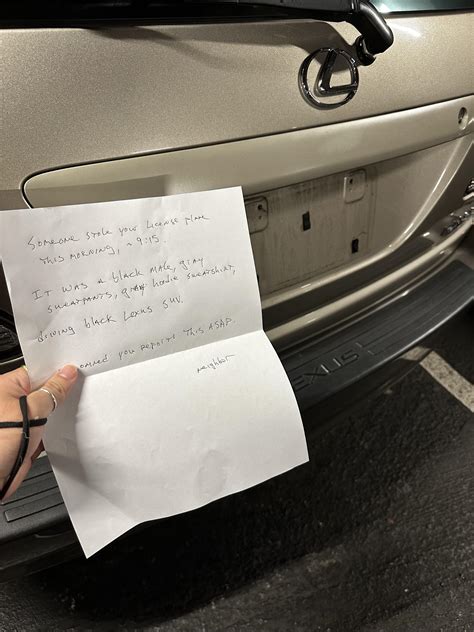 Someone stole your license plate
this morning, ~ 9:15.
It was a black male, gray
sweatpants, gray hoodie sweatshirt,
driving black Lexus SUV.
you reports this ASAP.
neighbor